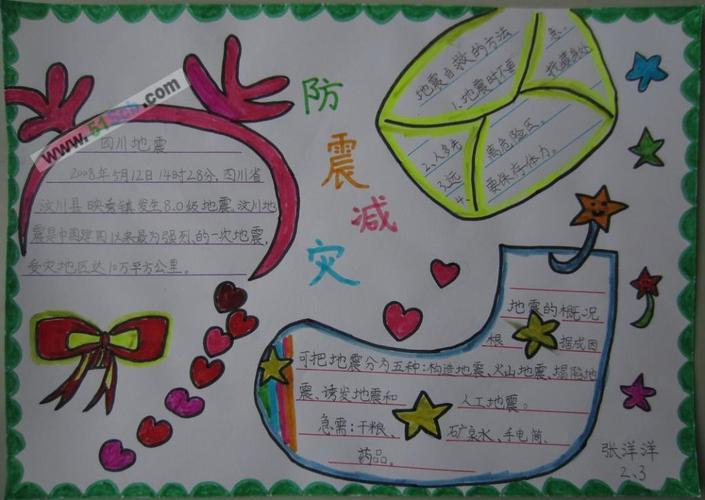 防
震
减
灾
www.51
.com
四川地震
2008年5月12日14时28分,四川省
汶川县映秀镇发生8.0级地震,汶川地
震是中国建国以来最为强烈的一次地震,
受灾地区达10万平方公里。
地震自救的方法
1.地震时不要
急。
找藏身处
2.人多先
3.远
离危险区。
4.
要保存体力。
地震的概况
根 据成因
可把地震分为五种:构造地震、火山地震、塌陷地
震、诱发地震和 人工地震。
急需:干粮、 矿泉水、手电筒、
药品。
张洋洋
2、3